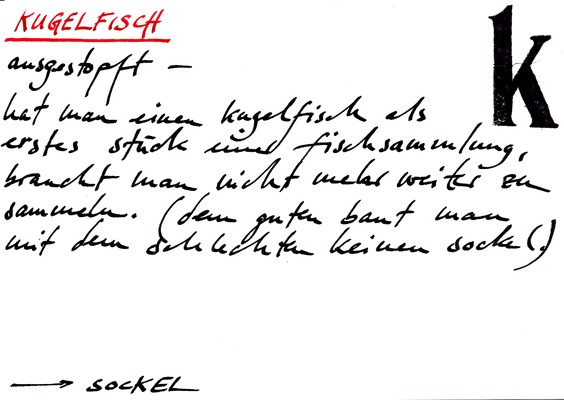 KUGELFISCH
k
ausgestopft –
hat man einen kugelfisch als
erstes stück einer fischsammlung,
braucht man nicht mehr weiter zu
sammeln. (dem guten baut man
mit dem schlechten keinen sockel.)
→ SOCKEL